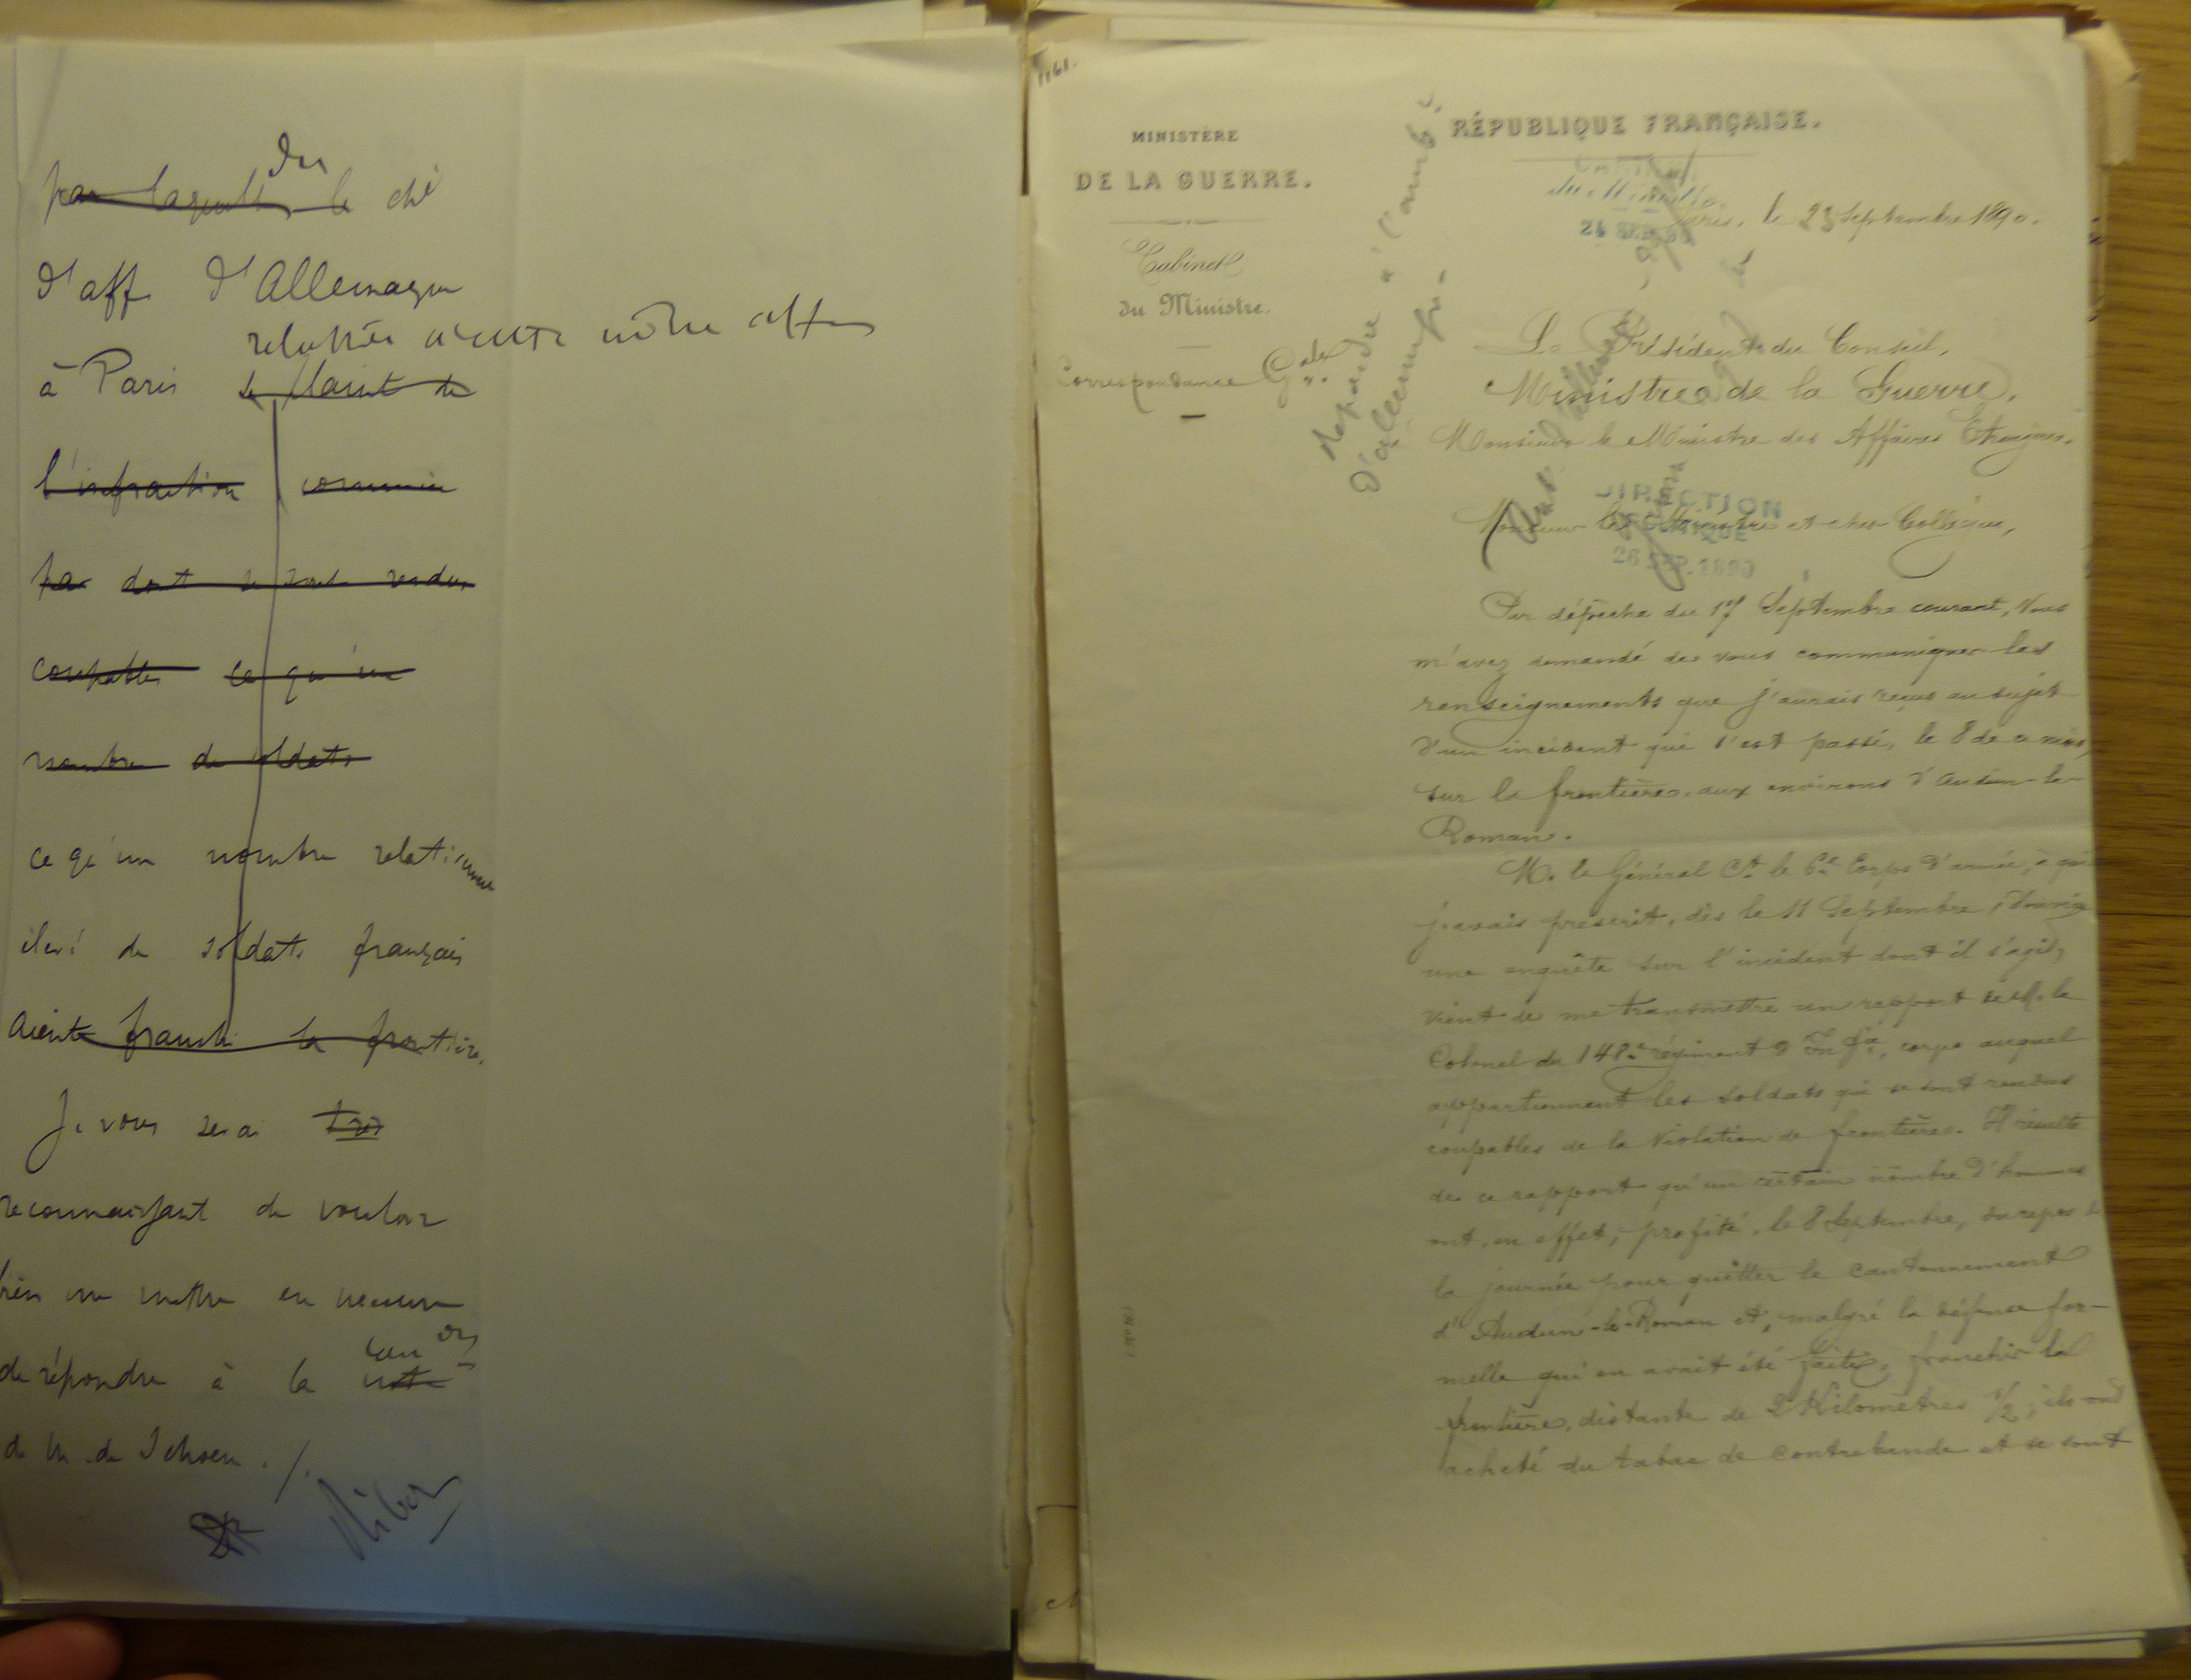 du
par laquelle le ché
d'aff. d'Allemagne
relative à cette même aff
à Paris se plaint de
l'infraction commise
par dont se sont rendus
coupables ce qu'un
nombre de soldats
ce qu'un nombre relati
de soldats français
aient franchi la frontière.
Je vous serai très
reconnaissant de vouloir
bien me mettre en mesure
de répondre à la note
de M. de Schoen ./.
Ribot
1161.
MINISTÈRE
DE LA GUERRE.
Cabinet
du Ministre.
Correspondance Gale
répondre à l'amb.
d'Allemagne
RÉPUBLIQUE FRANÇAISE.
CABINET
du Ministre
24 SEP. 90
Paris, le 23 Septembre 1890.
Le Président du Conseil,
Ministre de la Guerre,
Monsieur le Ministre des Affaires Etrangères.
DIRECTION
POLITIQUE
26 SEP. 1890
Monsieur le Ministre et cher Collègue,
Par dépêche du 17 Septembre courant, Vous
m'avez demandé de vous communiquer les
renseignements que j'aurais reçus au sujet
d'un incident qui s'est passé, le 8 de ce mois,
sur la frontière, aux environs d'Audun-le-
Roman.
M. le Général Ct. le 6e Corps d'armée, à qui
j'avais prescrit, dès le 11 Septembre, d'ouvrir
une enquête sur l'incident dont il s'agit,
vient de me transmettre un rapport de M. le
Colonel du 148e régiment d'Infie, corps auquel
appartiennent les soldats qui se sont rendus
coupables de la violation de frontière. Il résulte
de ce rapport qu'un certain nombre d'hommes
ont, en effet, profité, le 8 Septembre, du repos de
la journée pour quitter le cantonnement
d'Audun-le-Roman et, malgré la défense for-
melle qui en avait été faite, franchir la
frontière, distante de 2 Kilomètres 1/2; ils ont
acheté du tabac de contrebande et se sont